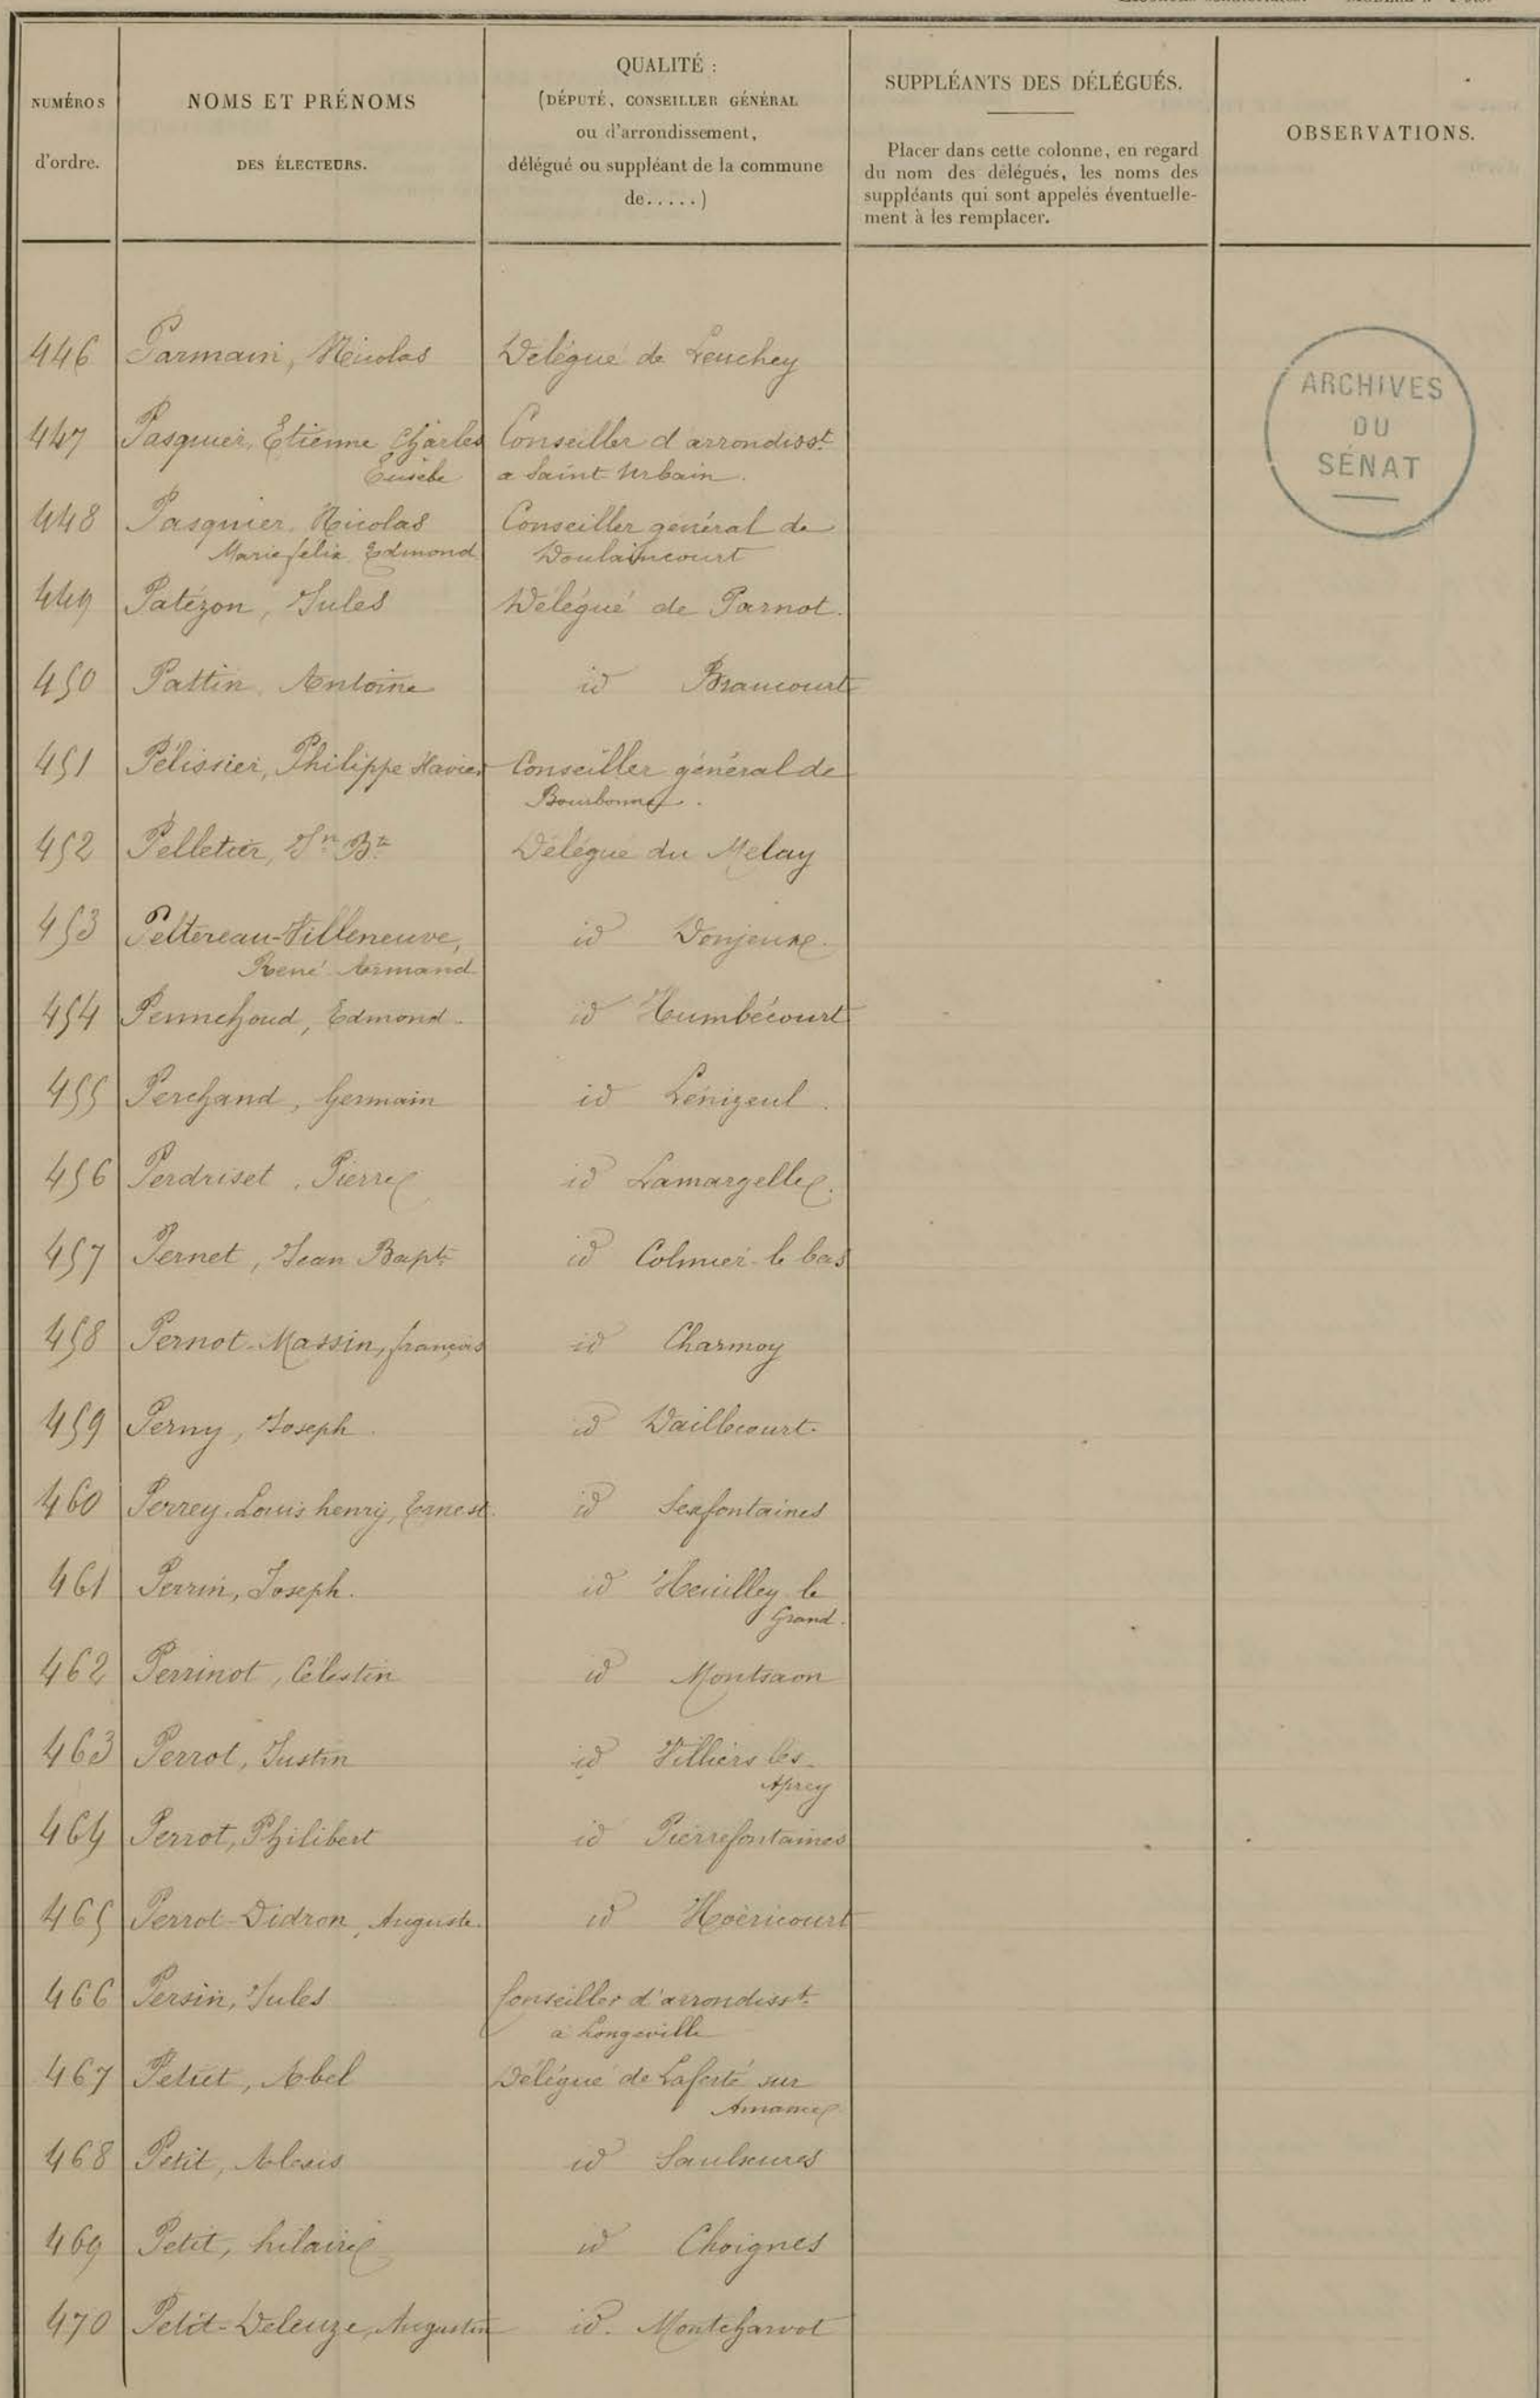 NUMÉROS
d'ordre.
NOMS ET PRÉNOMS
DES ÉLECTEURS.
QUALITÉ :
(DÉPUTÉ, CONSEILLER GÉNÉRAL
ou d'arrondissement,
délégué ou suppléant de la commune
de.....)
SUPPLÉANTS DES DÉLÉGUÉS.
Placer dans cette colonne, en regard
du nom des délégués, les noms des
suppléants qui sont appelés éventuelle-
ment à les remplacer.
OBSERVATIONS.
ARCHIVES
DU
SÉNAT
446 Parmain, Nicolas Délégué de Leuchey
447 Pasquier, Etienne Charles Conseiller d'arrondisst
Eusèbe a Saint-Urbain.
448 Pasquier Nicolas Conseiller général de
Marie félix Edmond Doulaincourt
449 Patézon, Jules Délégué de Parnot.
450 Pattin, Antoine id Braucourt
451 Pélissier, Philippe Xavier Conseiller général de
Bourbonne.
452 Pelletier, Jn Bte Délégué du Melay
453 Peltereau-Villeneuve, id Donjeux.
René Armand
454 Pennehoud, Edmond. id Humbécourt
455 Perchand, Germain id Lénizeul.
456 Perdriset, Pierre id Lamargelle.
457 Pernet, Jean Bapte id Colmier-le bas
458 Pernot-Massin, françois id Charmoy
459 Perny, Joseph. id Daillecourt.
460 Perrey, Louis henry, Ernest. id Sexfontaines
461 Perrin, Joseph. id Heuilley le
Grand.
462 Perrinot, Célestin id Montsaon
463 Perrot, Justin id Villiers les-
Aprey
464 Perrot, Philibert id Pierrefontaines
465 Perrot-Didron, Auguste. id Hoëricourt
466 Persin, Jules Conseiller d'arrondisst.
a Longeville
467 Petiet, Abel Délégué de Laferté sur
Amance
468 Petit, Alexis id Saulxures
469 Petit, hilaire id Choignes
470 Petit-Deleuze, Augustin id. Montcharvot